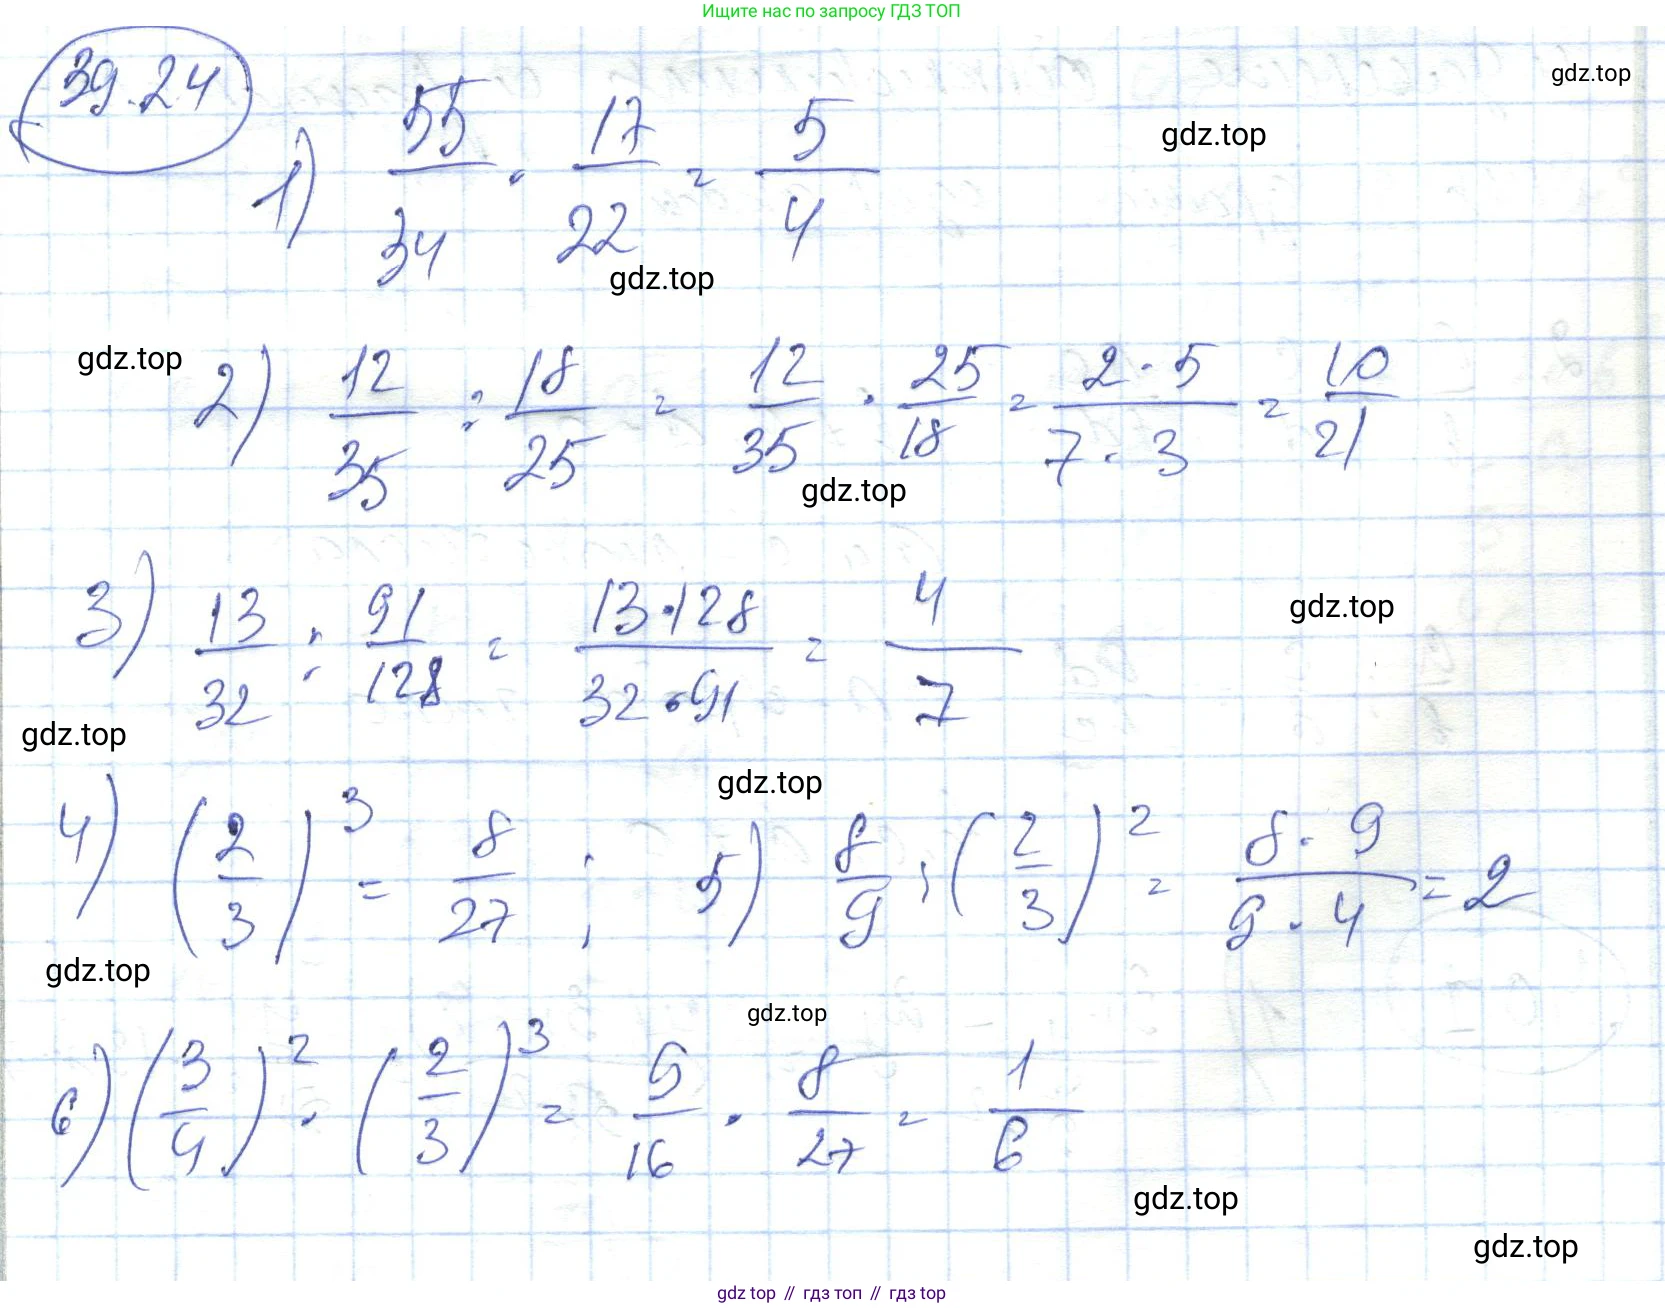 Ищите нас по запросу ГДЗ ТОП
39.24
gdz.top
gdz.top
1) 55/34 · 17/22 = 5/4
gdz.top
gdz.top
2) 12/35 : 18/25 = 12/35 · 25/18 = 2·5/7·3 = 10/21
gdz.top
3) 13/32 : 91/128 = 13·128/32·91 = 4/7
gdz.top
gdz.top
gdz.top
4) (2/3)³ = 8/27 ; 5) 8/9 : (2/3)² = 8·9/9·4 = 2
gdz.top
gdz.top
6) (3/4)² · (2/3)³ = 9/16 · 8/27 = 1/6
gdz.top
gdz.top
gdz top // гдз топ // gdz top